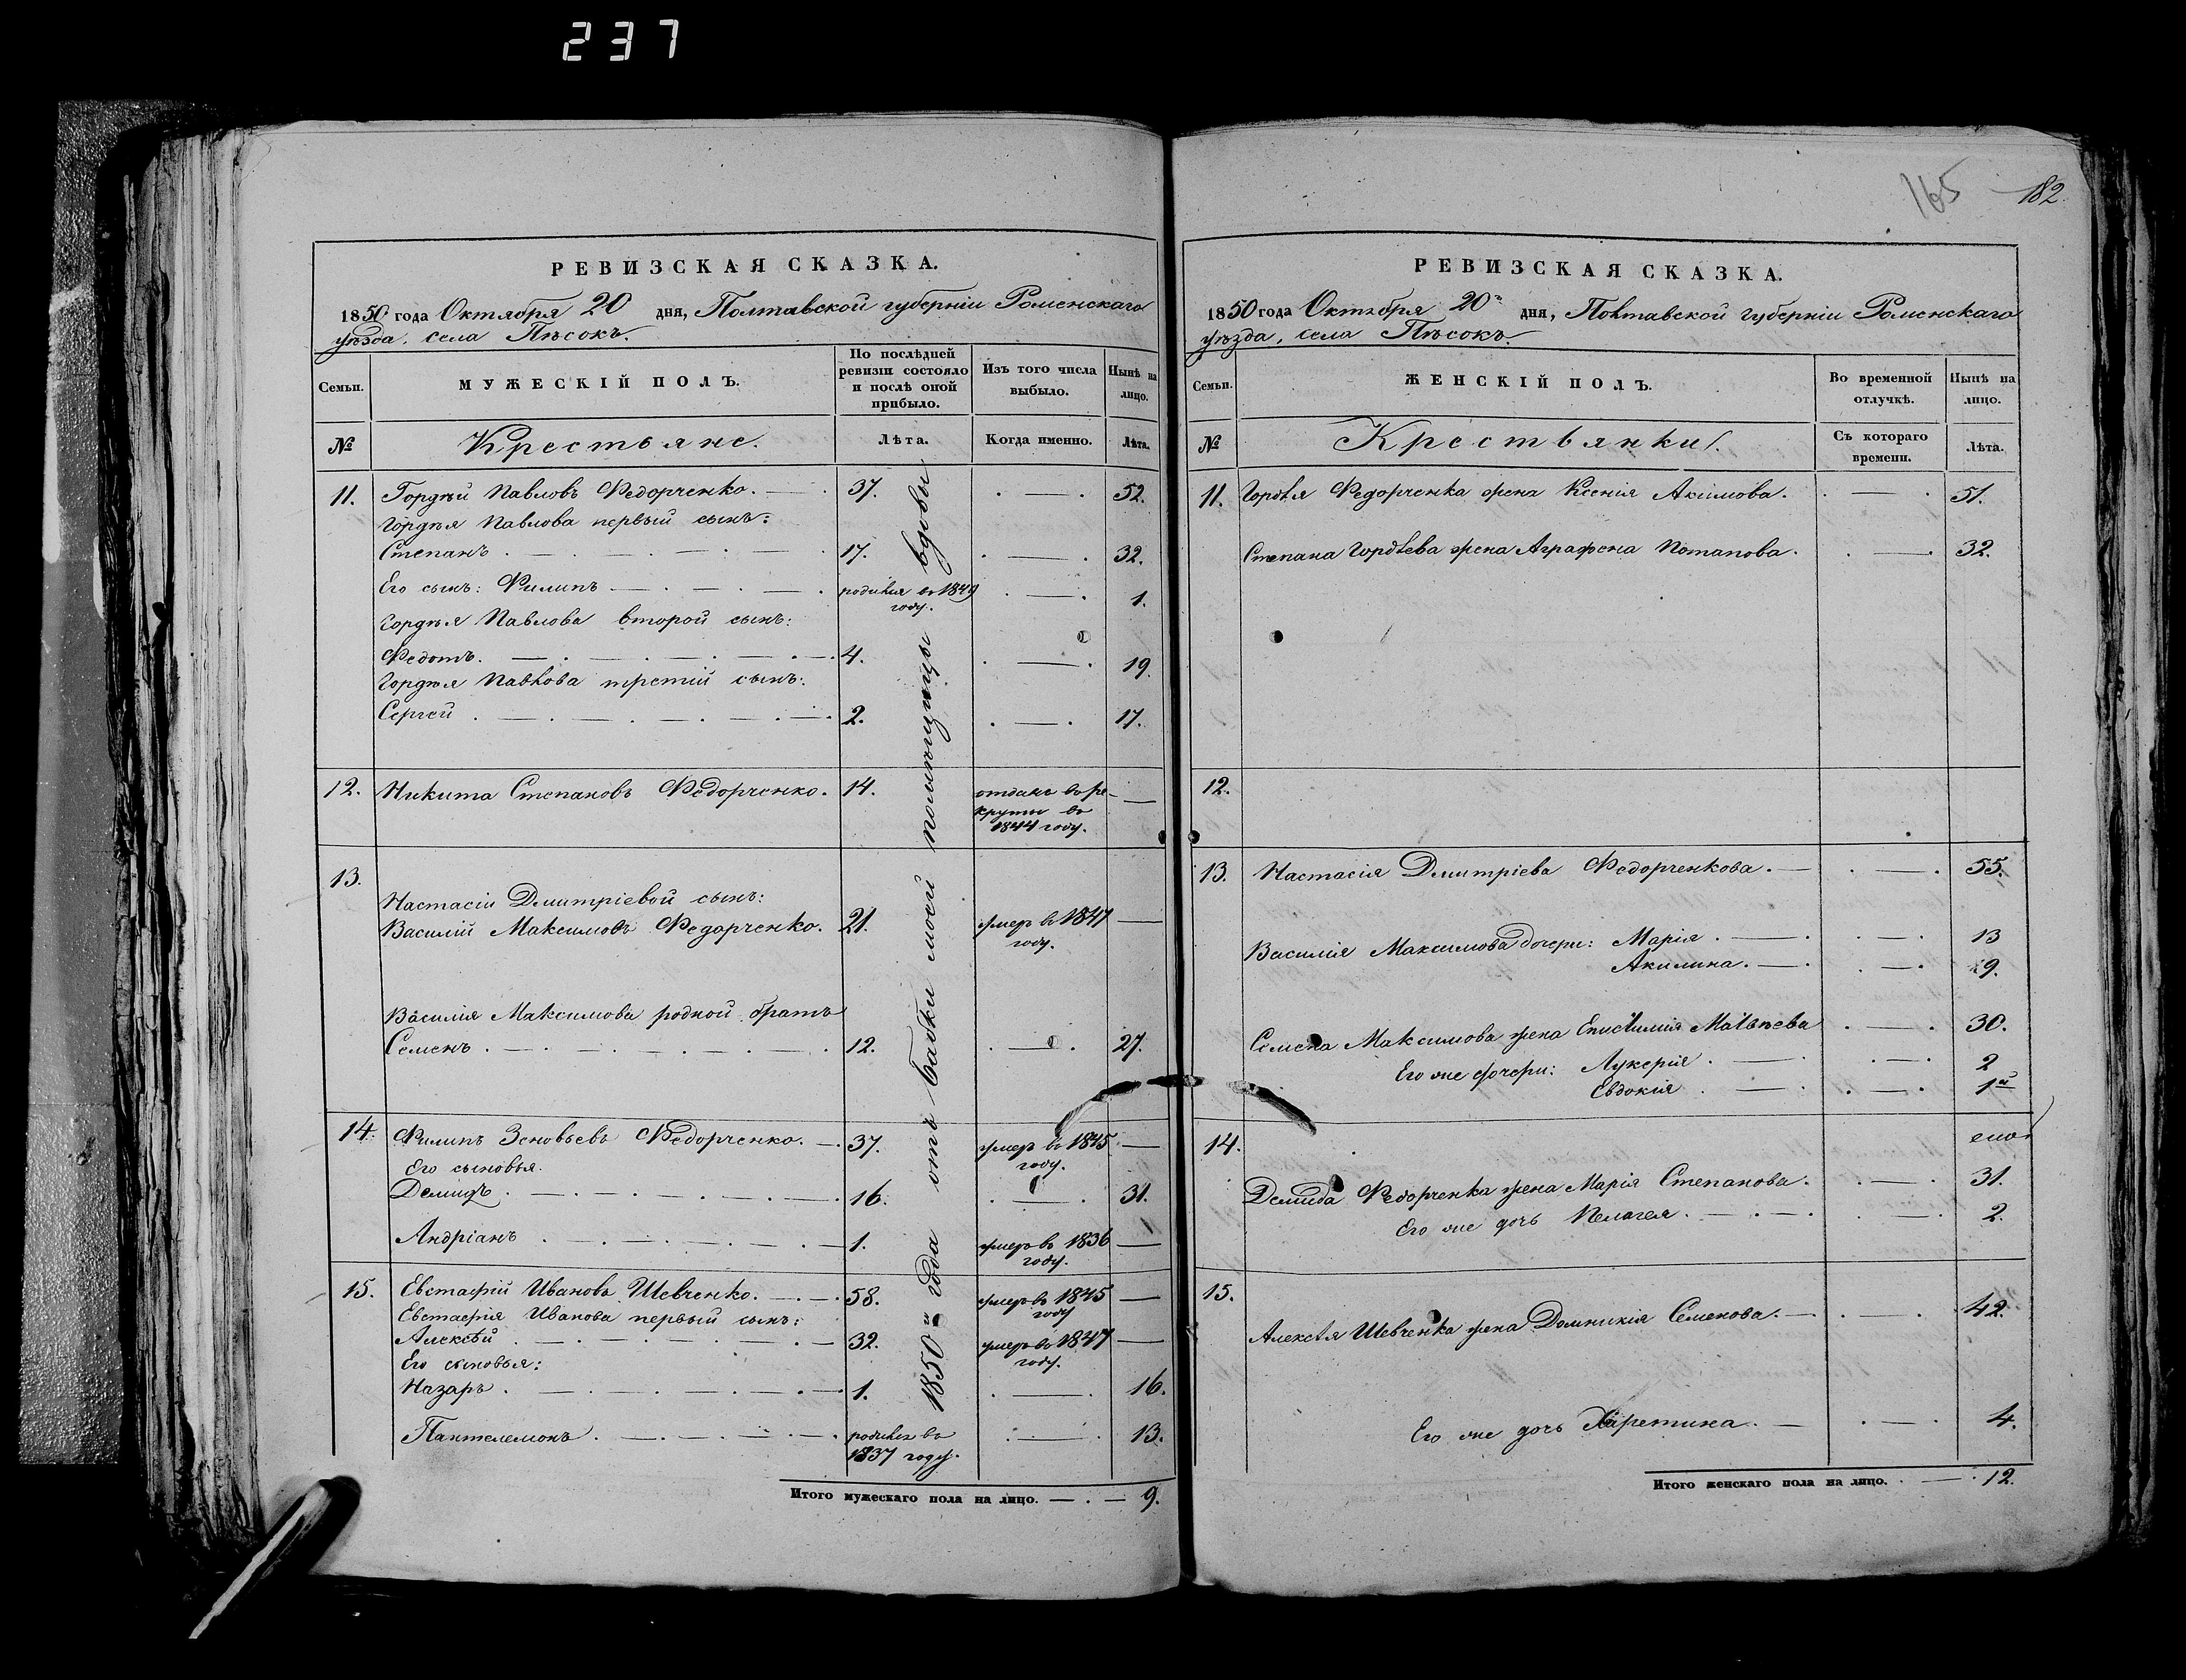 237
165
182.
РЕВИЗСКАЯ СКАЗКА.
1850 года Октября 20 дня, Полтавской губерніи Роменскаго
уѣзда, села Пѣсокъ.
Семьи.
МУЖЕСКІЙ ПОЛЪ.
По послѣдней ревизіи состояло и послѣ оной прибыло.
Изъ того числа выбыло.
Нынѣ на лицо.
№
Крестьяне.
Лѣта.
Когда именно.
Лѣта.
11. Гордѣй Павловъ Федорченко. 37. 52.
Гордѣя Павлова первый сынъ:
Степанъ 17. 32.
Его сынъ: Филипъ родился въ 1849 году. 1.
Гордѣя Павлова второй сынъ:
Федотъ. 4. 19.
Гордѣя Павлова третій сынъ:
Сергей 2. 17.
12. Никита Степановъ Федорченко. 14. отданъ въ рекруты въ 1844 году. —
13.
Настасіи Дмитріевой сынъ:
Василій Максимовъ Федорченко. 21. умеръ въ 1847 году. —
Василія Максимова родной братъ
Семенъ 12. 27.
14. Филипъ Зеновьевъ Федорченко. 37. умеръ въ 1845 году. —
Его сыновья.
Демидъ 16. 31.
Андріанъ 1. умеръ въ 1836 году. —
15. Евстафій Ивановъ Шевченко. 58. умеръ въ 1845 году —
Евстафія Иванова первый сынъ:
Алексѣй 32. умеръ въ 1847 году. —
Его сыновья:
Назаръ 1. 16.
Пантелемонъ родился въ 1837 году. 13.
Итого мужескаго пола на лицо. 9.
1850 года отъ бабки моей помѣщицы вдовы
РЕВИЗСКАЯ СКАЗКА.
1850 года Октября 20 дня, Полтавской губерніи Роменскаго
уѣзда, села Пѣсокъ.
Семьи.
ЖЕНСКІЙ ПОЛЪ.
Во временной отлучкѣ.
Нынѣ на лицо.
№
Крестьянки.
Съ котораго времени.
Лѣта.
11. Гордѣя Федорченка жена Ксенія Акимова. 51.
Степана Гордѣева жена Аграфена Потапова. 32.
12.
13. Настасія Дмитріева Федорченкова. 55.
Василія Максимова дочери: Марія 13
Акилина. 9.
Семена Максимова жена Епистимія Матвѣева 30.
Его же дочери: Лукерія 2
Евдокія 1
14.
Демида Федорченка жена Марія Степанова. 31.
Его же дочь Пелагея. 2.
15.
Алексѣя Шевченка жена Домникія Семенова. 42.
Его же дочь Харетина. 4.
Итого женскаго пола на лицо. 12.